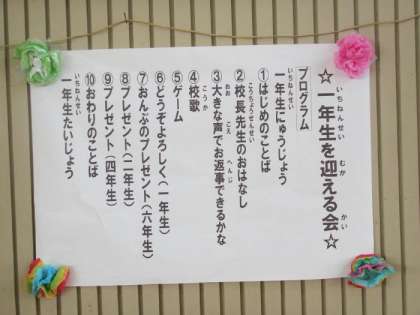 ☆一年生を迎える会☆
プログラム
一年生にゅうじょう
①はじめのことば
②校長先生のおはなし
③大きな声でお返事できるかな
④校歌
⑤ゲーム
⑥どうぞよろしく(一年生)
⑦おんぷのプレゼント(六年生)
⑧プレゼント(二年生)
⑨プレゼント(四年生)
⑩おわりのことば
一年生たいじょう